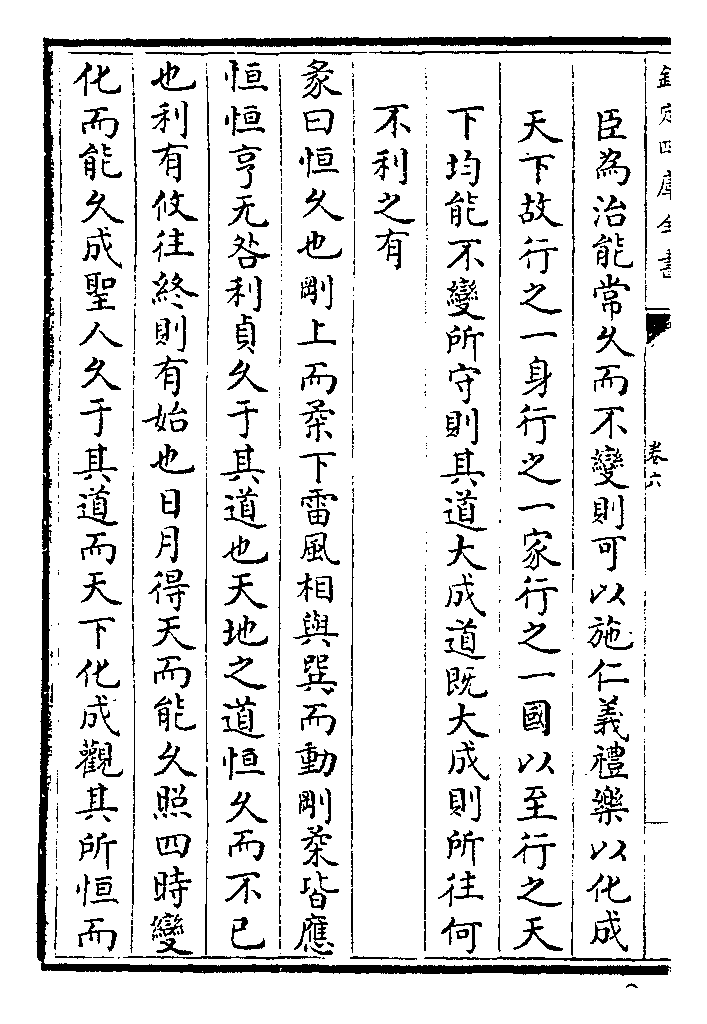 欽定四庫全書
卷六
臣為治能常久而不變則可以施仁義禮樂以化成
天下故行之一身行之一家行之一國以至行之天
下均能不變所守則其道大成道既大成則所往何
不利之有
彖曰恒久也剛上而柔下雷風相與巽而動剛柔皆應
恒恒亨无咎利貞久于其道也天地之道恒久而不已
也利有攸往終則有始也日月得天而能久照四時變
化而能久成聖人久于其道而天下化成觀其所恒而